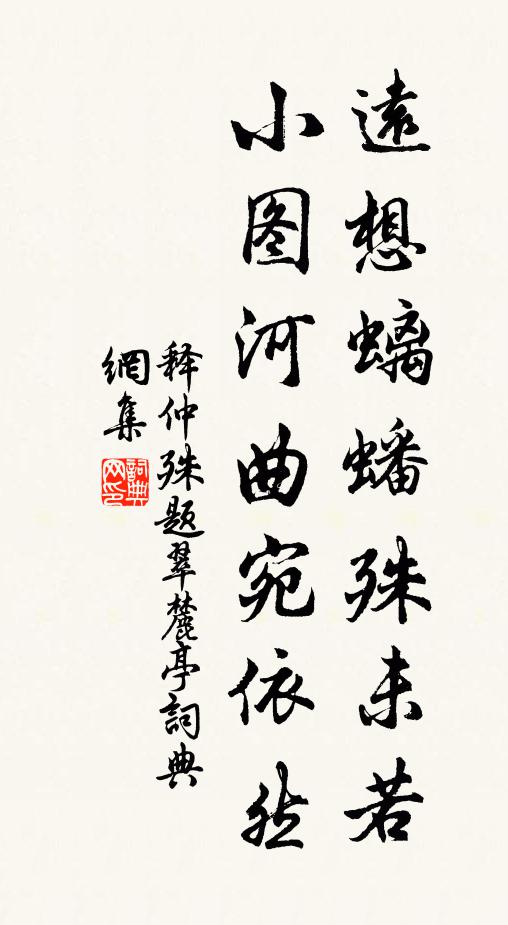 遠想螭蟠殊未若
小图河曲宛依然
释仲殊题翠麓亭詞典
網集
詞典网印